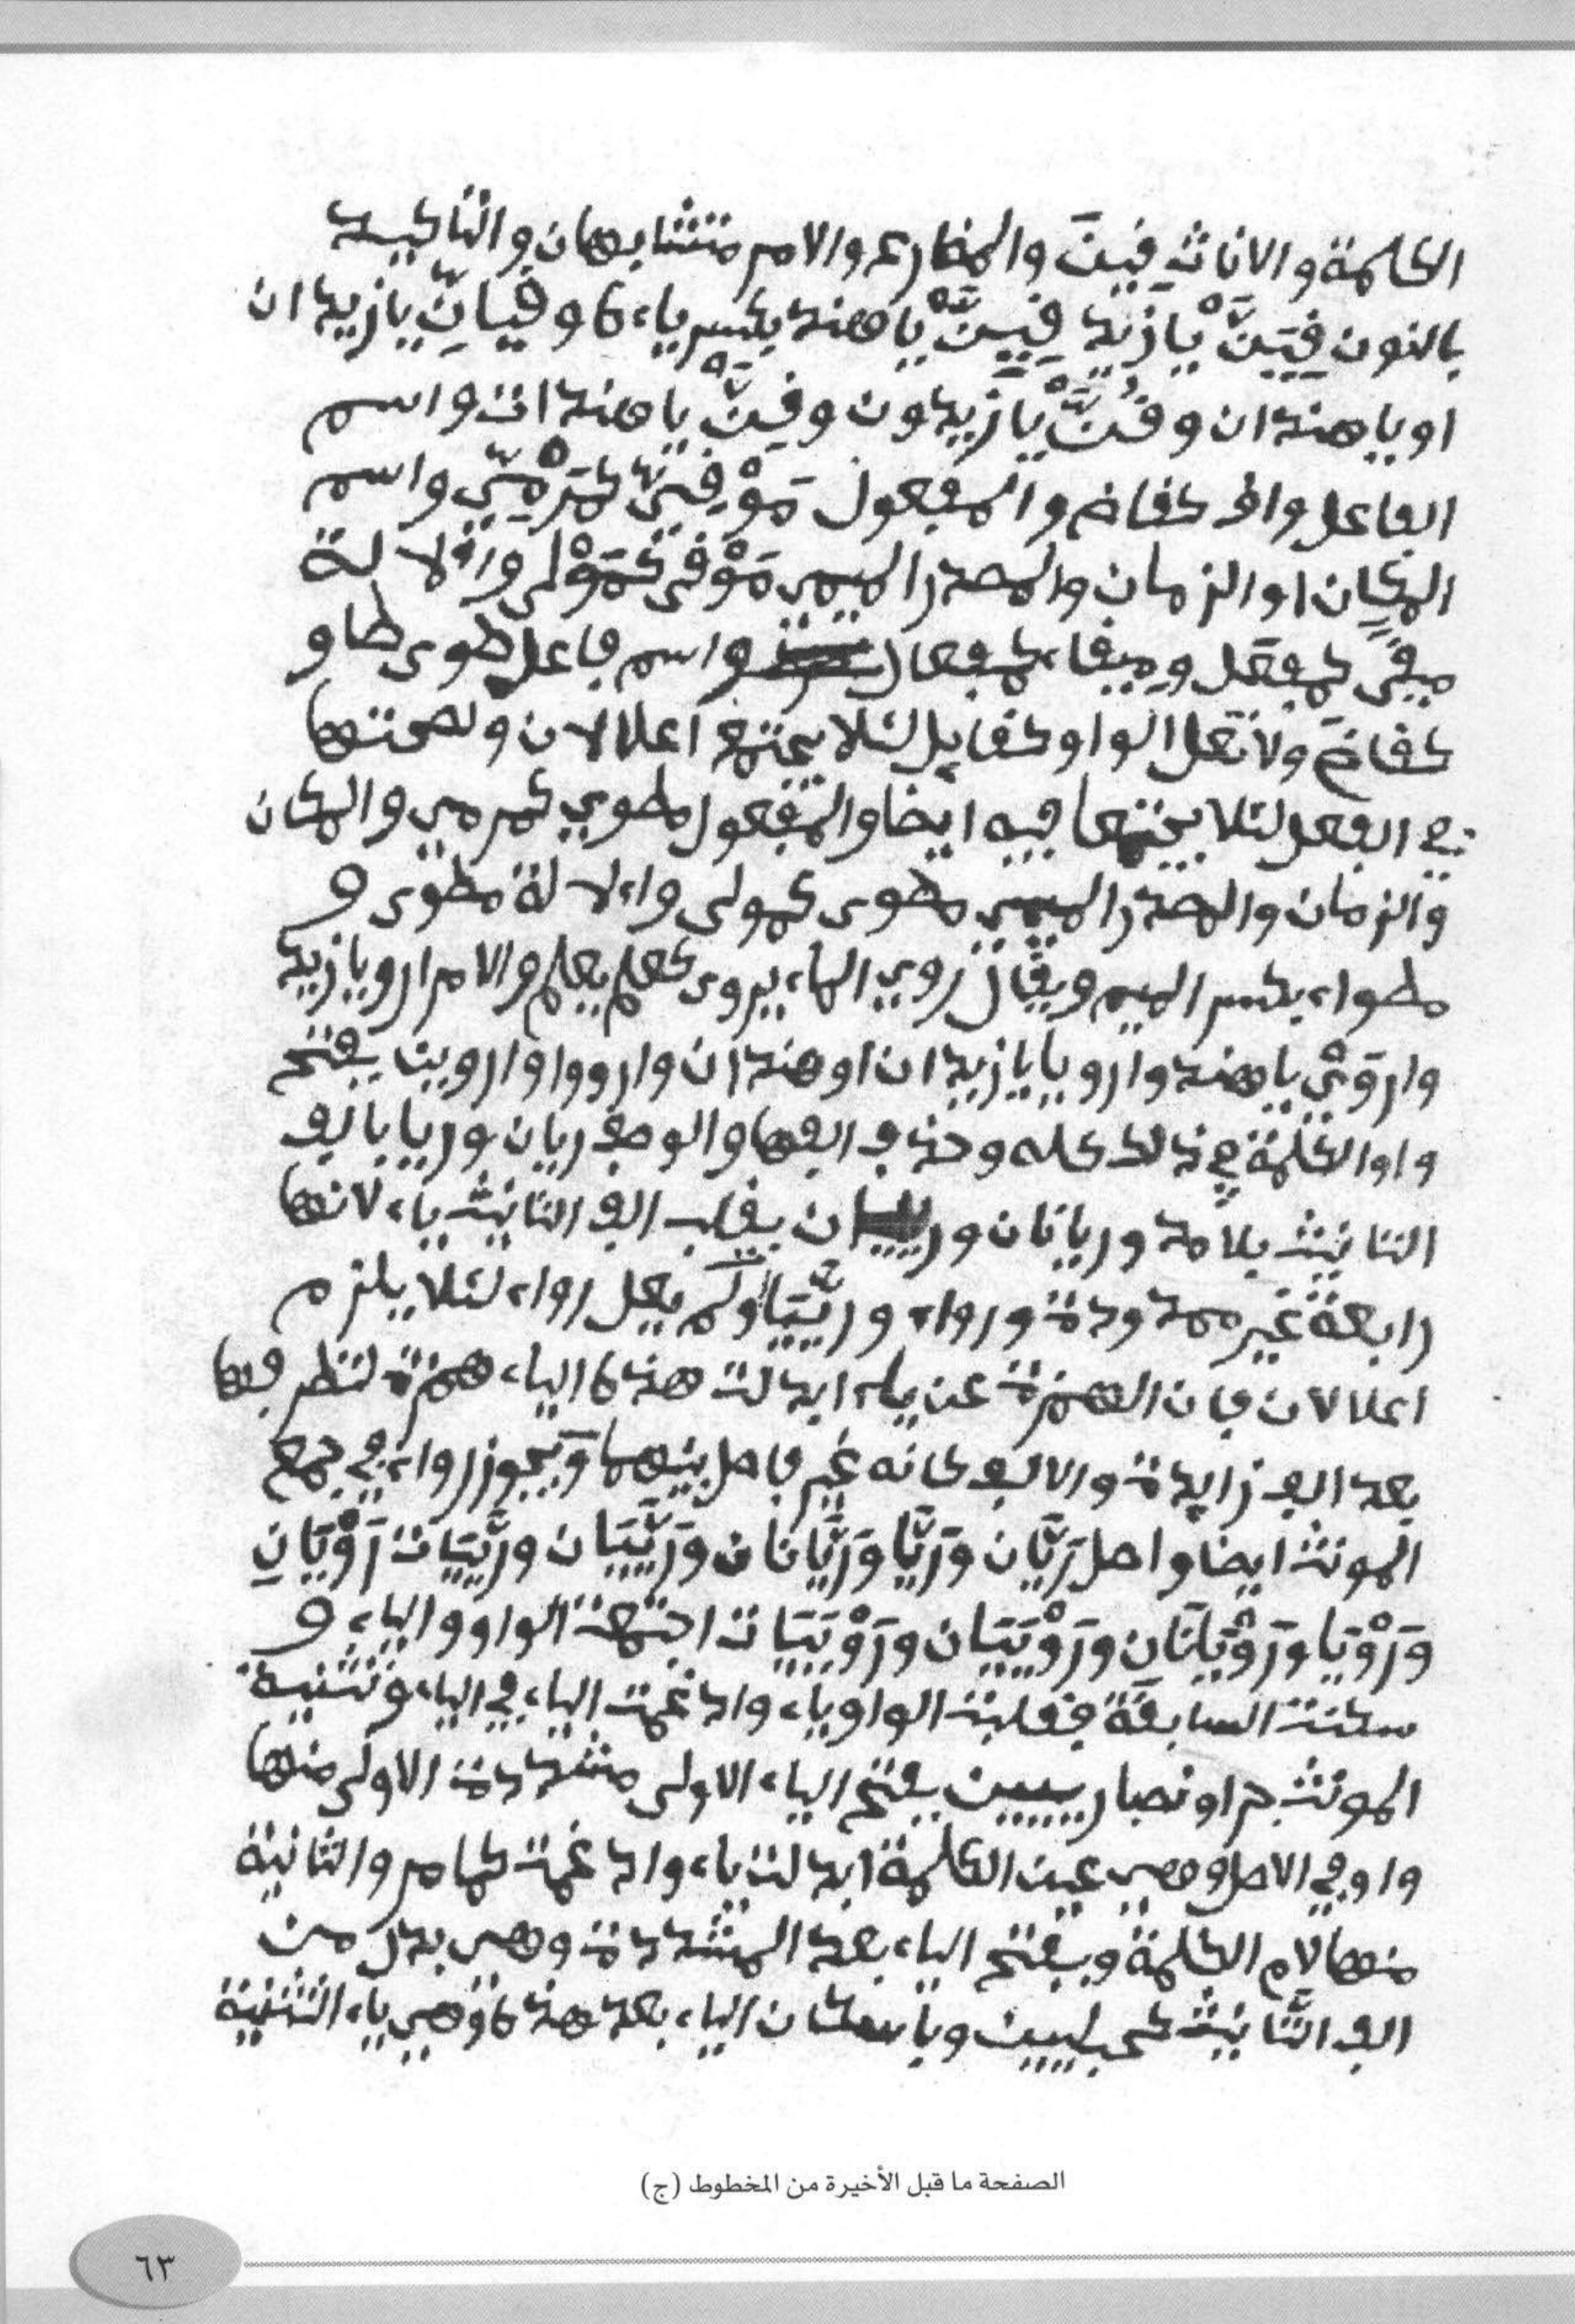 الكلمة والاناث فِينَ والمضارع والامر متشابهان والتاكيد
بالنون فِيَنَّ يا زيد فِيِنَّ يا هند بكسر ياءه وفِيَانِّ يا زيدان
او يا هندان وفُنَّ يا زيدون وفِنَّ يا هندات واسم
الفاعل واف كقاض والمفعول مَوْفِيّ كمَرْمِيّ واسم
المكان او الزمان والمصدر الميمي مَوْفى كمَوْلى والالة
ميفى كمفعل وميفاء كمفعال واسم فاعل طوى طاو
كقاض ولا تعل الواو كقايل لئلا يجتمع اعلالان ولصحتها
في الفعل لئلا يجتمعا فيه ايضا والمفعول مطوي كمرمي والمكان
والزمان والمصدر الميمي مطوى كمولى والالة مطوى و
مطواء بكسر الميم ويقال روي الماء يروى كعلم يعلم والامر ارو يا زيد
وارْوَيْ يا هند وارويا يا زيدان او هندان وارووا واروين بفتح
واو الكلمة في ذلك كله وحذف الفها والوصف ريان وريا بالف
التانيث بلا مد وريانان ورييان بقلب الف التانيث ياء لانها
رابعة غير ممدودة ورواء ورَيَّيَات ولم يعل رواء لئلا يلزم
اعلالان فان الهمزة عن ياء ابدلت هذه الياء همزة لتطرفها
بعد الف زايدة والالف كانه غير فاصل بينهما ويجوز رواء في جمع
المونث ايضا واصل رَيَّان ورَيَّا ورَيَّانان ورَيَّيَان ورَيَّيَات رَوْيَان
ورَوْيَا ورَوْيَانَانِ ورَوْيَيَان ورَوْيَيَات اجتمعت الواو والياء و
سكنت السابقة فقلبت الواو ياء وادغمت الياء في الياء وتثنية
المونث جرا ونصبا رييين بفتح الياء الاولى مشددة الاولى منها
واو في الاصل وهي عين الكلمة ابدلت ياء وادغمت كما مر والثانية
منهما لام الكلمة وبفتح الياء بعد المشددة وهي بدل من
الف التَّانيث كحبليين وباسكان الياء بعد هذه وهي ياء التثنية
الصفحة ما قبل الأخيرة من المخطوط (ج)
٦٣